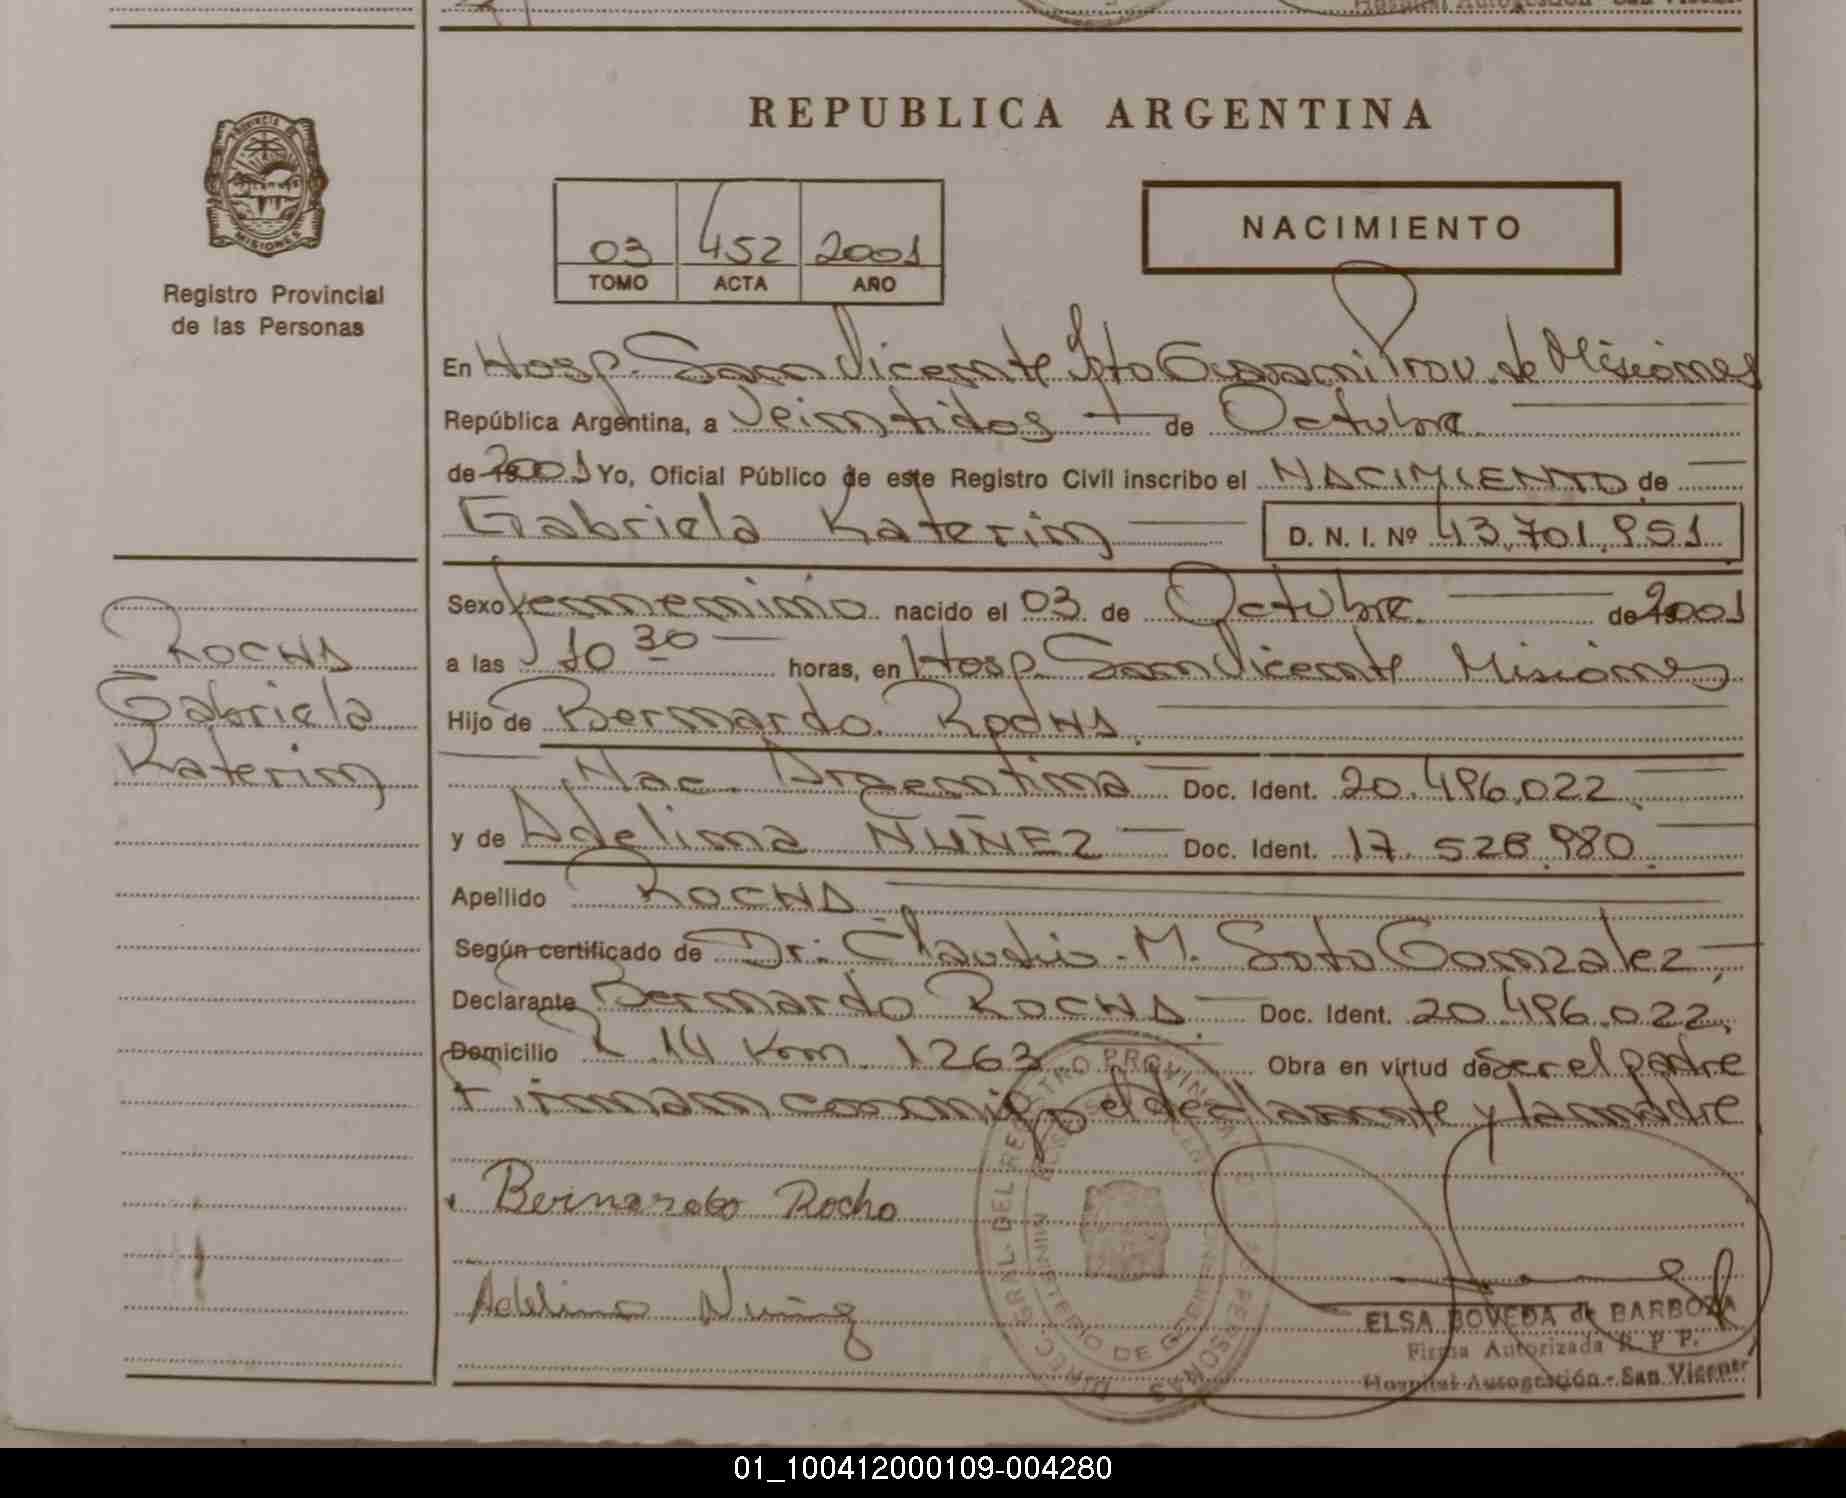 REPUBLICA ARGENTINA
PROVINCIA DE
MISIONES
Registro Provincial
de las Personas
03 452 2001
TOMO ACTA AÑO
NACIMIENTO
En Hosp. San Vicente Dpto Guarani Prov. de Misiones
República Argentina, a Veintidos de Octubre
de 2001 Yo, Oficial Público de este Registro Civil inscribo el NACIMIENTO de
Gabriela Katerin D. N. I. Nº 43.701.951
Sexo femenino nacido el 03 de Octubre de 2001
a las 10 30 horas, en Hosp. San Vicente Misiones
Hijo de Bernardo Rocha
Nac. Argentina Doc. Ident. 20.496.022
y de Adelina NUÑEZ Doc. Ident. 17.528.980
Apellido ROCHA
Según certificado de Dr: Claudio M. Soto Gonzalez
Declarante Bernardo ROCHA Doc. Ident. 20.496.022
Domicilio R 14 Km. 1263 Obra en virtud de Ser el padre
Firman conmigo el declarante y la madre
ROCHA
Gabriela
Katerin
Bernardo Rocha
Adelina Nuñez
ELSA BOVEDA de BARBOZA
Firma Autorizada R. P. P.
Hospital Autogestión - San Vicente
01_100412000109-004280